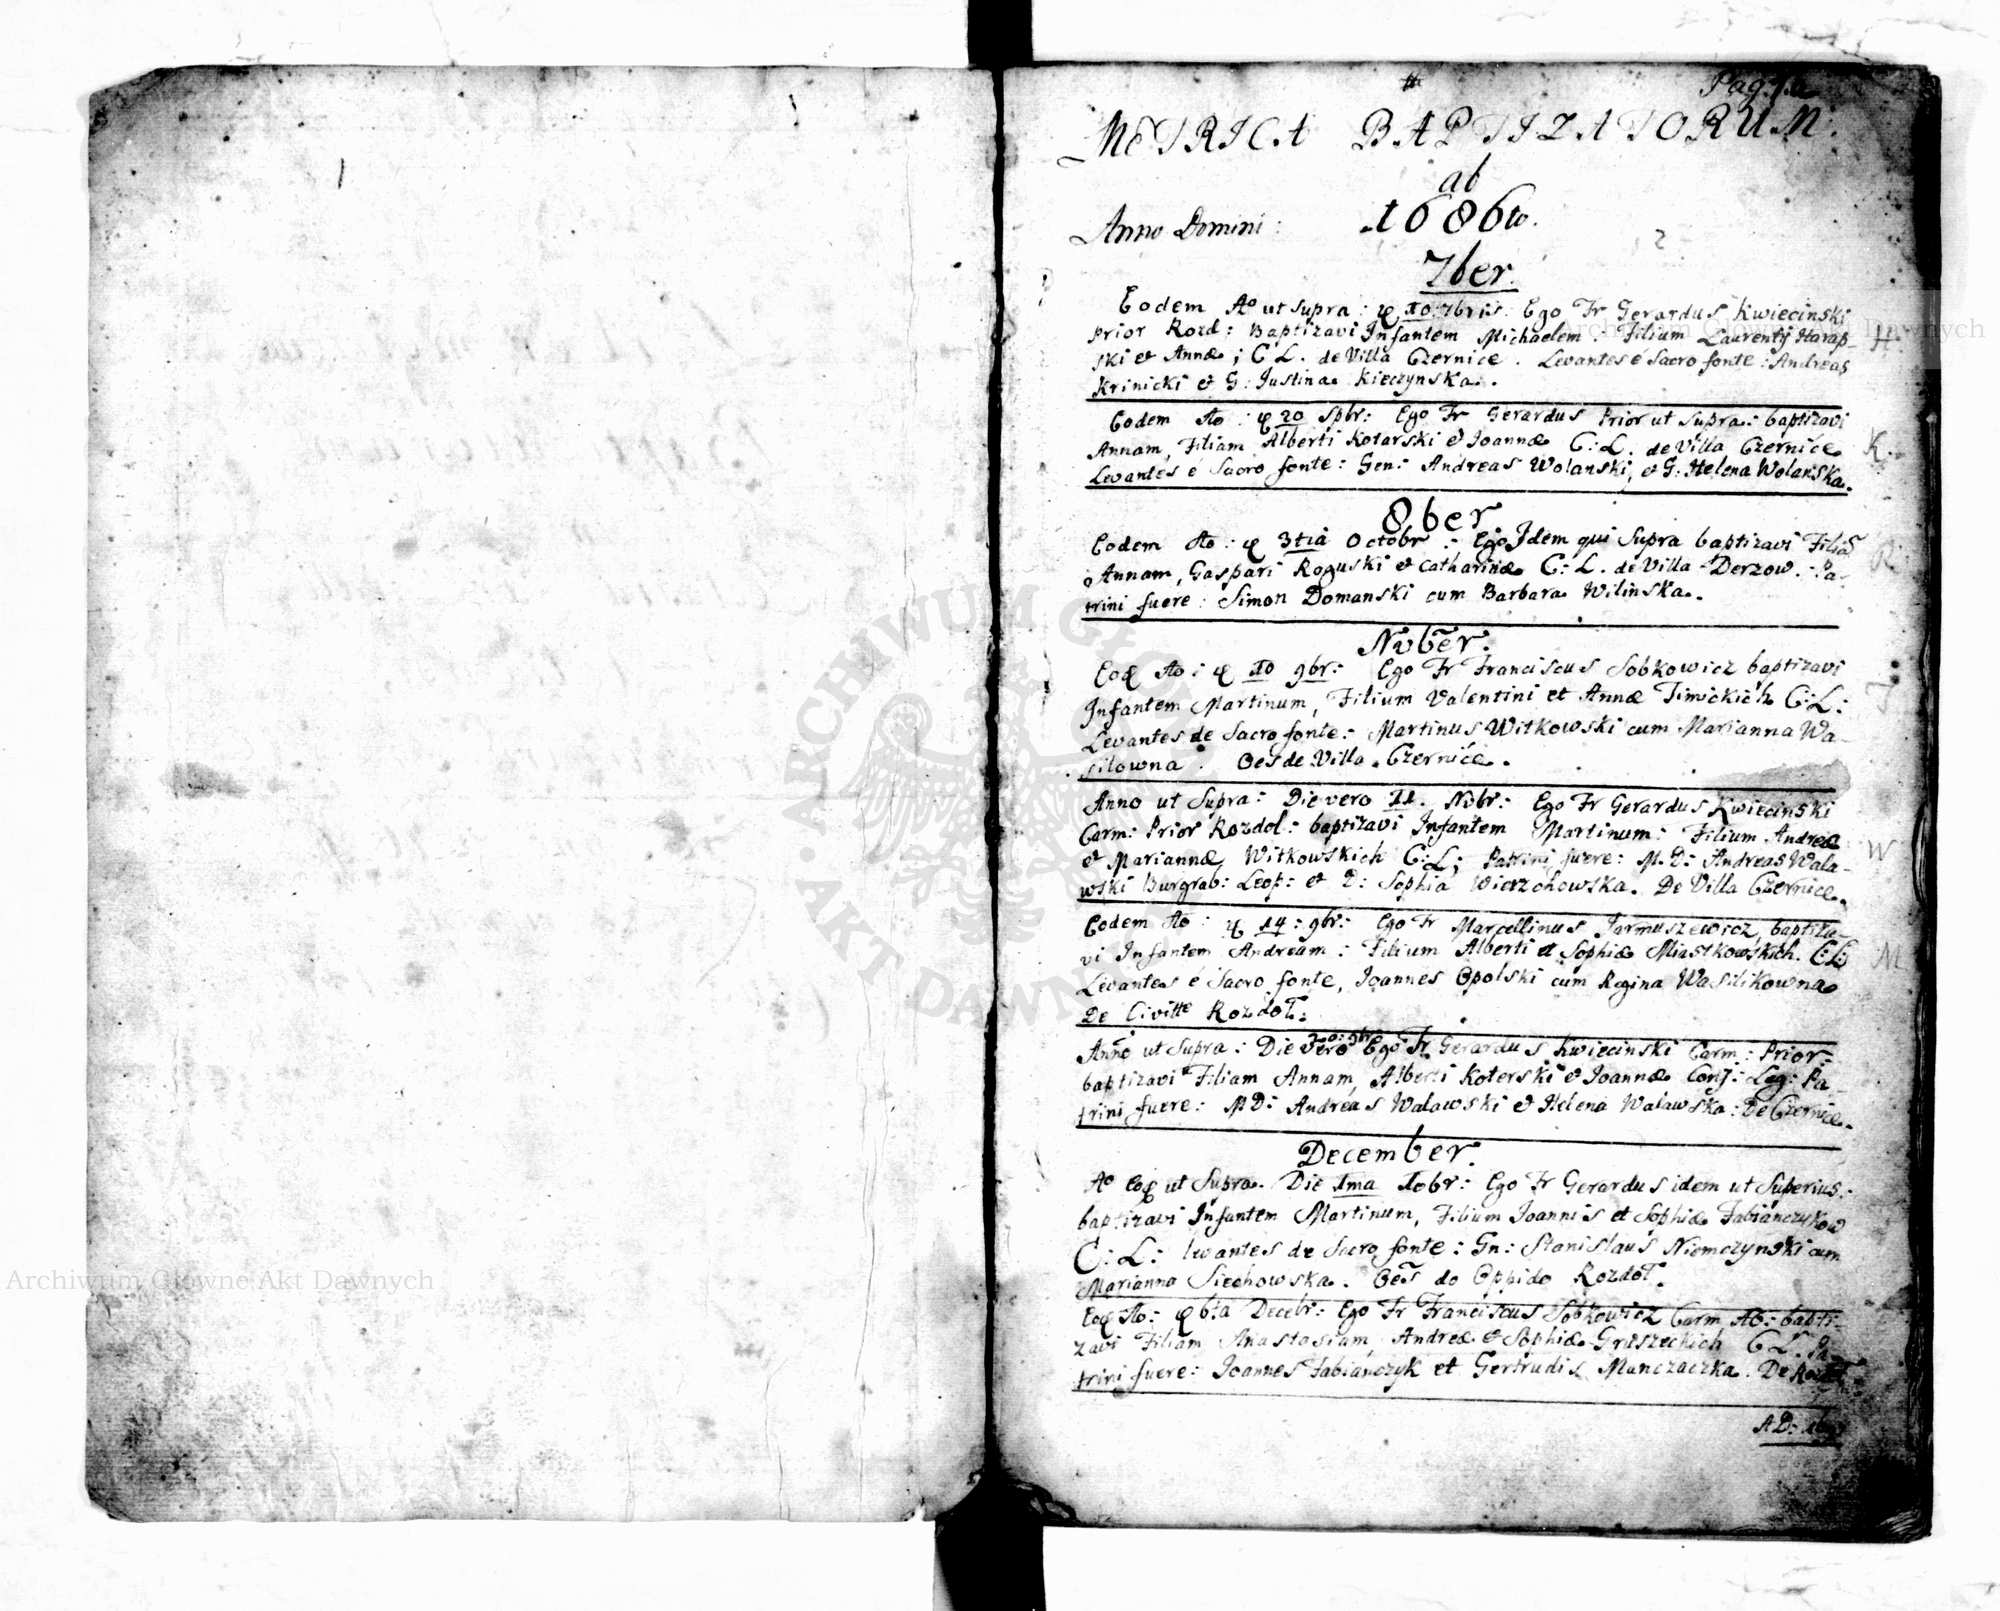 Pag. 1.a
METRICA BAPTIZATORUM.
ab
Anno Domini: 1686to.
7ber.
Eodem Ao ut supra: 10. 7bris: Ego Fr Gerardus Kwiecinski
Prior Rozd: Baptizavi Infantem Michaelem. Filium Laurentij Harap-
ski et Annæ; C L. de Villa Czernice. Levantes é Sacro fonte: Andreas
Krinicki et G: Justina Kieczynska.
H.
Eodem Ao: 20 Spbr: Ego Fr Gerardus Prior ut supra: baptizavi
Annam, Filiam Alberti Kotarski et Joannæ C: L. de Villa Czernice
Levantes é Sacro fonte: Gen: Andreas Wolanski, et G: Helena Wolanska.
K.
8ber
Eodem Ao: 3tia Octobr: Ego Idem qui supra baptizavi Filiã
Annam, Gaspari Roguski et Catharinæ C: L. de Villa Derzow. Pa-
trini fuere: Simon Domanski cum Barbara Wilinska.
R.
Nvber.
Eod Ao: 10 9br: Ego Fr Franciscus Sobkowicz baptizavi
Infantem Martinum, Filium Valentini et Annæ Timickich C: L:
Levantes de Sacro fonte: Martinus Witkowski cum Marianna Wa-
silowna. Oes de Villa Czernice.
Anno ut supra: Die vero 11. Nvbr: Ego Fr Gerardus Kwiecinski
Carm: Prior Rozdol: baptizavi Infantem Martinum: Filium Andreæ
et Mariannæ, Witkowskich C: L; Patrini fuere: M. D: Andreas Wala-
wski Burgrab: Leop: et D: Sophia Wierzchowska. De Villa Czernice.
W
Eodem Ao: 14: 9br: Ego Fr Marcellinus Jarmuszewicz, baptiza-
vi Infantem Andream: Filium Alberti et Sophiæ Miastkowskich. C: L:
Levantes é Sacro fonte, Joannes Opolski cum Regina Wasilikowna
De Civitte Rozdoł:
M
Anno ut supra: Die vero 20: 9br Ego Fr Gerardus Kwiecinski Carm: Prior:
baptizavi Filiam Annam, Alberti Koterski et Joannæ Conj: Leg: Pa-
trini fuere: M D: Andreas Walawski et Helena Walawska: De Czernice.
December.
Ao Eod ut supra. Die 1ma 10br: Ego Fr Gerardus idem ut superius.
baptizavi Infantem Martinum, Filium Joannis et Sophiæ Fabianczykow
C: L: levantes de Sacro fonte: Gn: Stanislaus Niemczynski cum
Marianna Siechowska. Oes de Oppido Rozdoł.
Eod Ao: 6ta Decebr: Ego Fr Franciscus Sobkowicz Carm AO: bapti-
zavi Filiam Anastasiam, Andreæ et Sophiæ Gruszeckich C L. Pa-
trini fuere: Joannes Fabianczyk et Gertrudis Manczaczka. De
AD:
Archiwum Główne Akt Dawnych
Archiwum Główne Akt Dawnych
ARCHIWUM GŁÓWNE • AKT DAWNYCH •